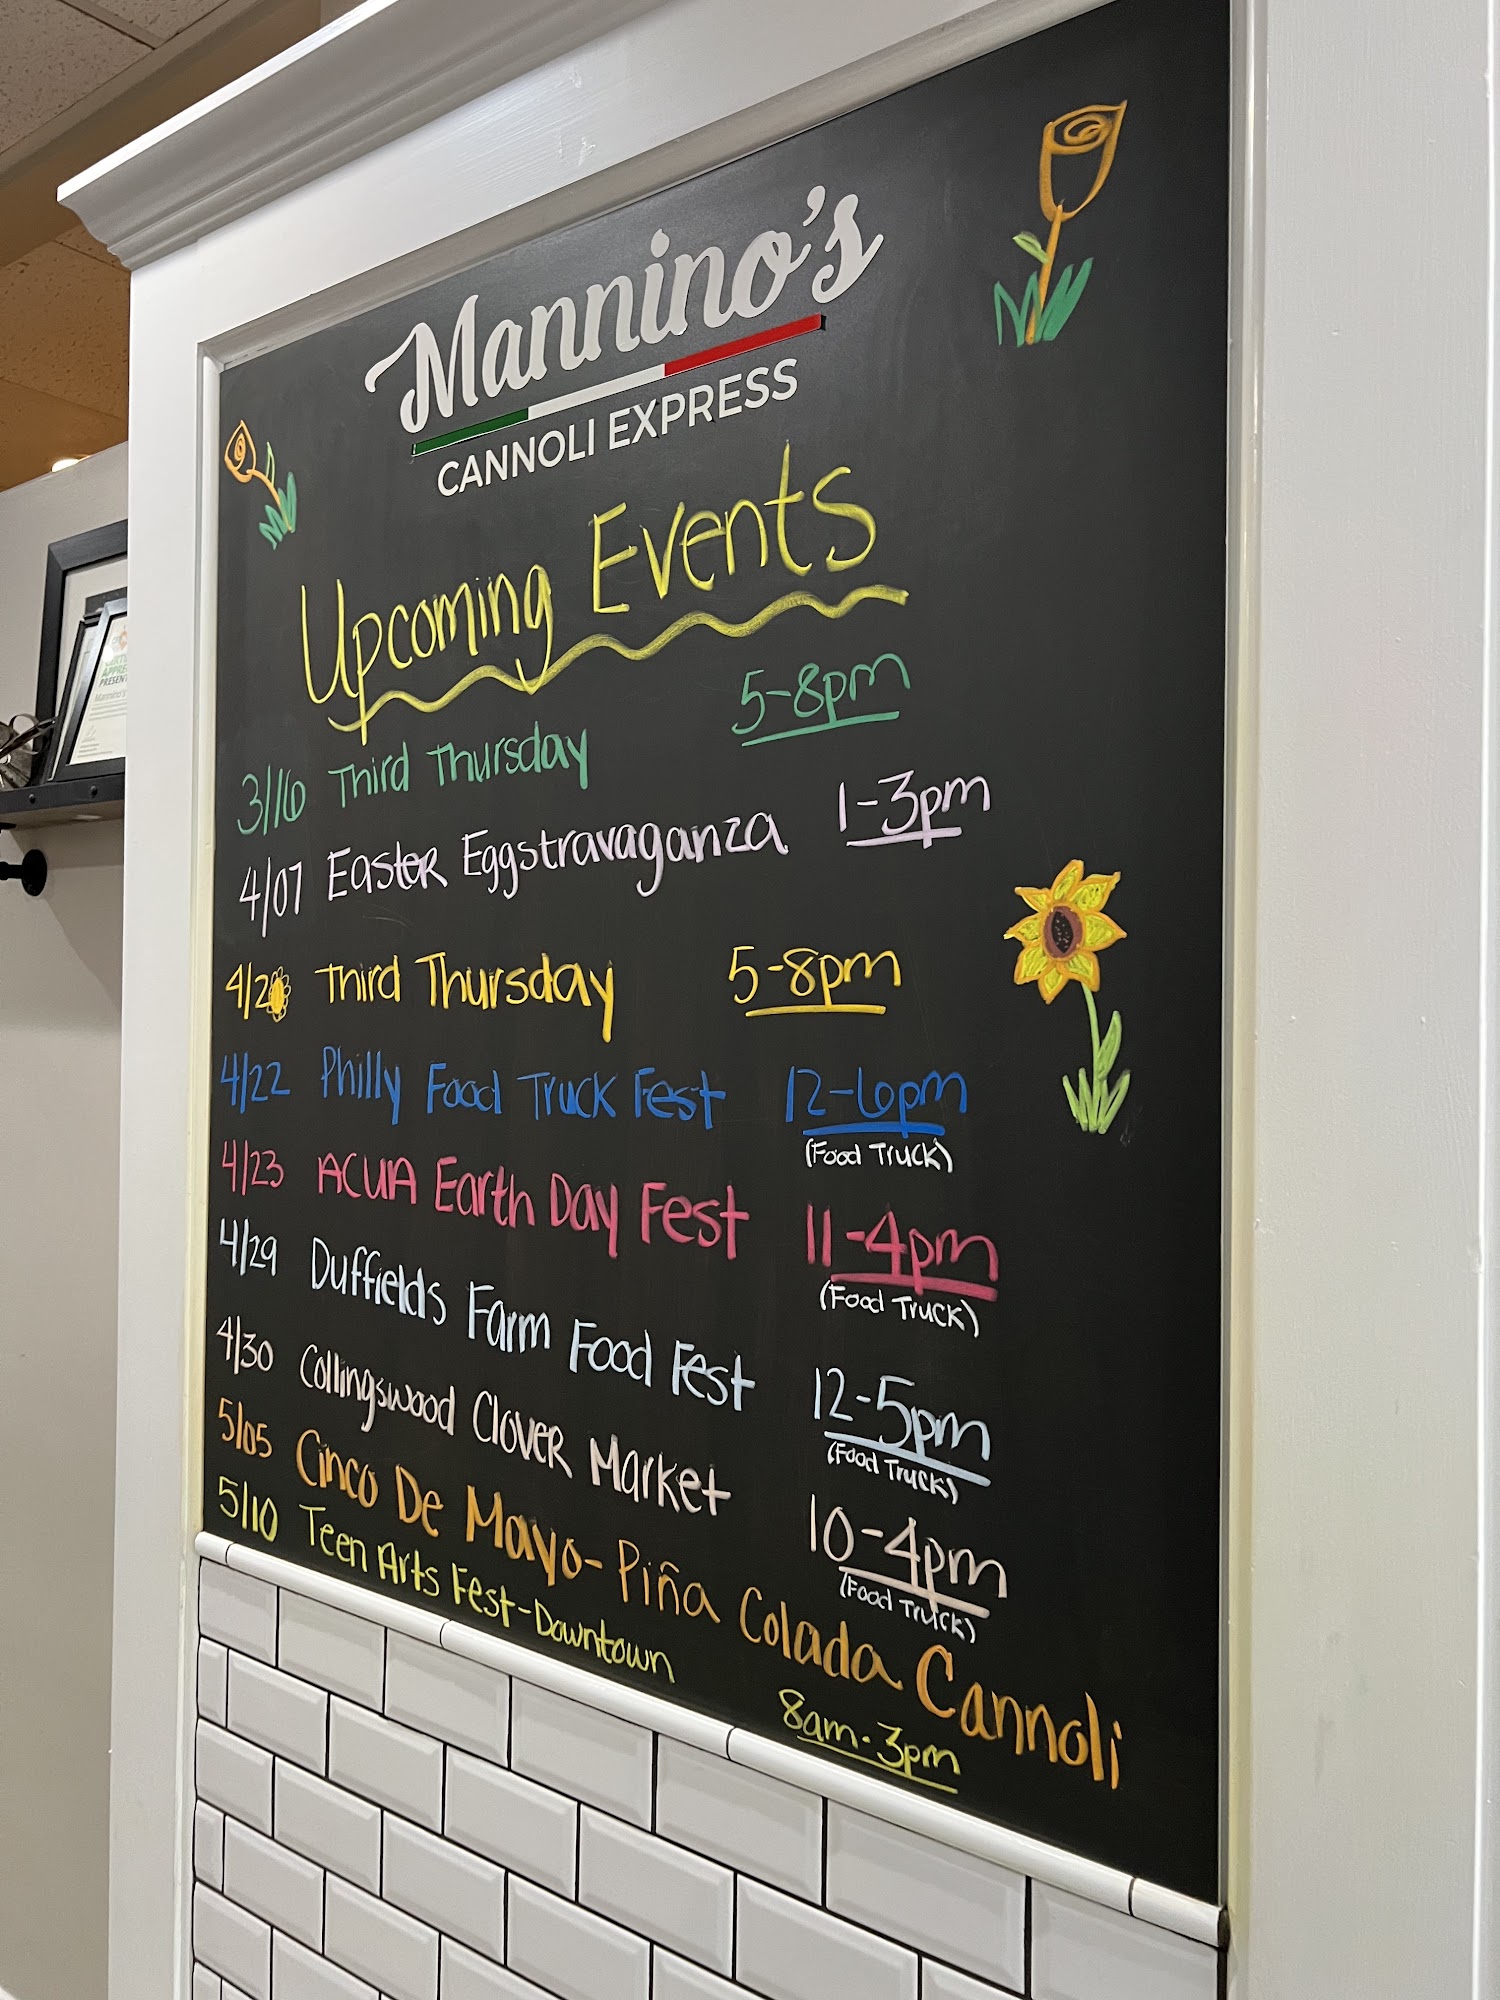 Mannino's
CANNOLI EXPRESS
Upcoming Events
3/16 Third Thursday 5-8pm
4/07 Easter Eggstravaganza 1-3pm
4/20 Third Thursday 5-8pm
4/22 Philly Food Truck Fest 12-6pm
(Food Truck)
4/23 ACUA Earth Day Fest 11-4pm
(Food Truck)
4/29 Duffields Farm Food Fest 12-5pm
(Food Truck)
4/30 Collingswood Clover Market 10-4pm
(Food Truck)
5/05 Cinco De Mayo- Piña Colada Cannoli
5/10 Teen Arts Fest-Downtown 8am-3pm